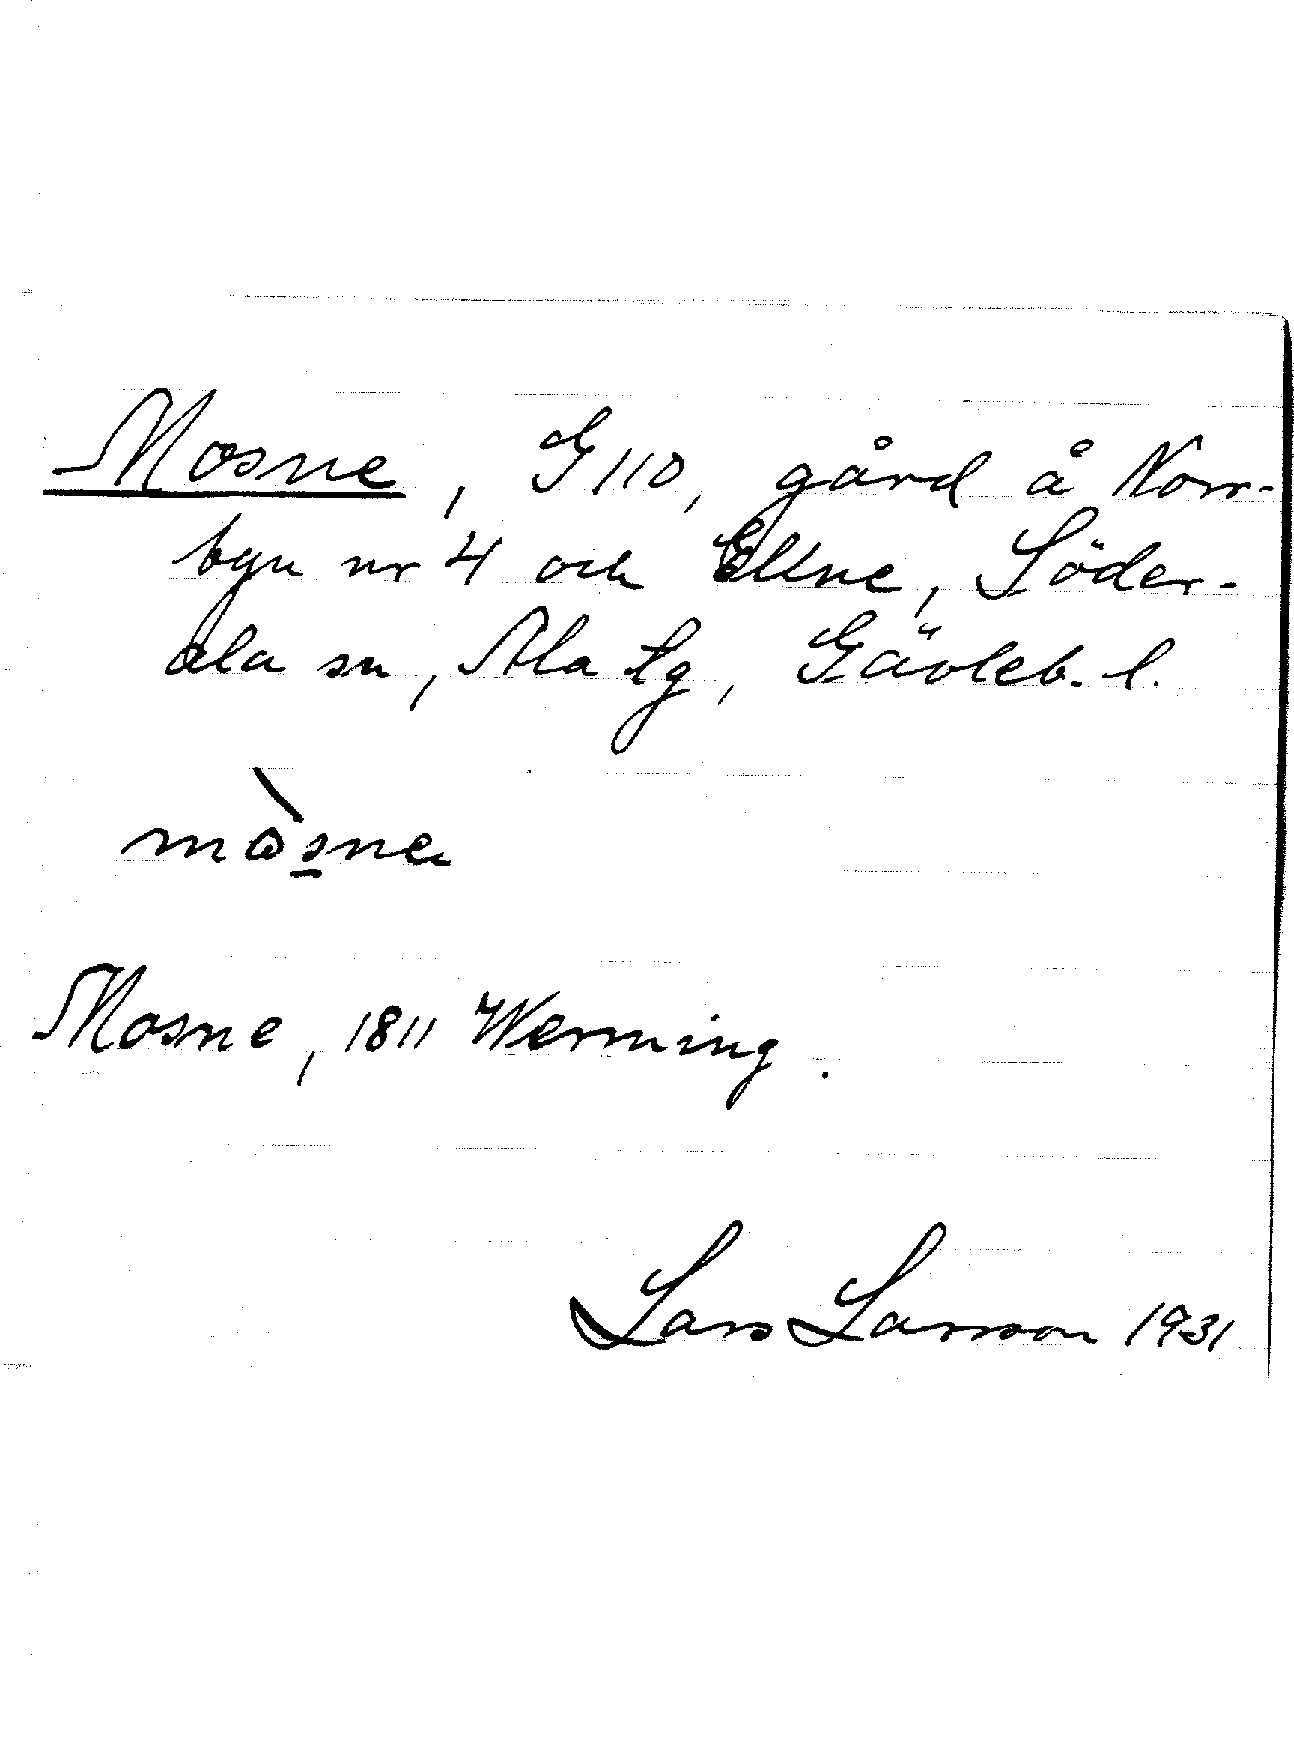 Mosne, G 110, gård å Norr-
byn nr 4 och Ellne, Söder-
ala sn, Ala tg, Gävleb. l.
mòsne
Mosne, 1811 Werming.
Lars Larsson 1931